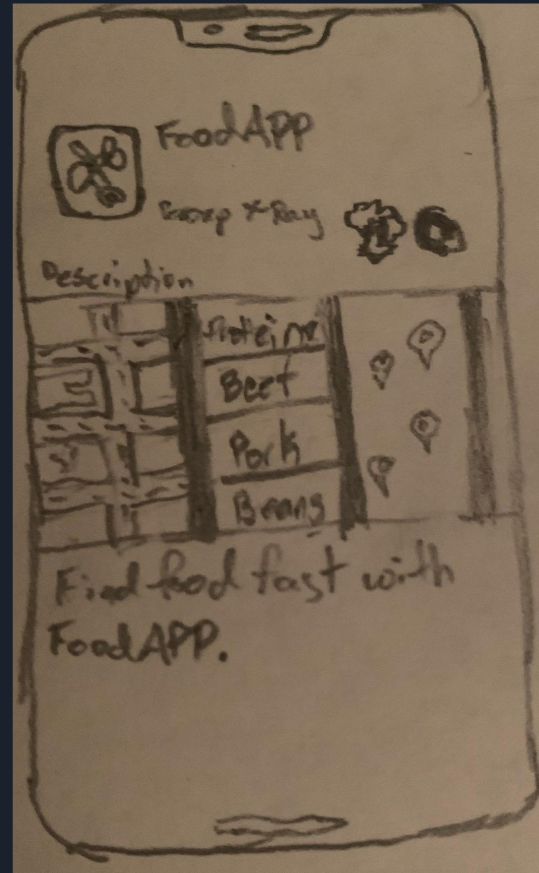 FoodAPP
X-Ray
Description
Proteins
Beef
Pork
Beans
Find food fast with
FoodAPP.